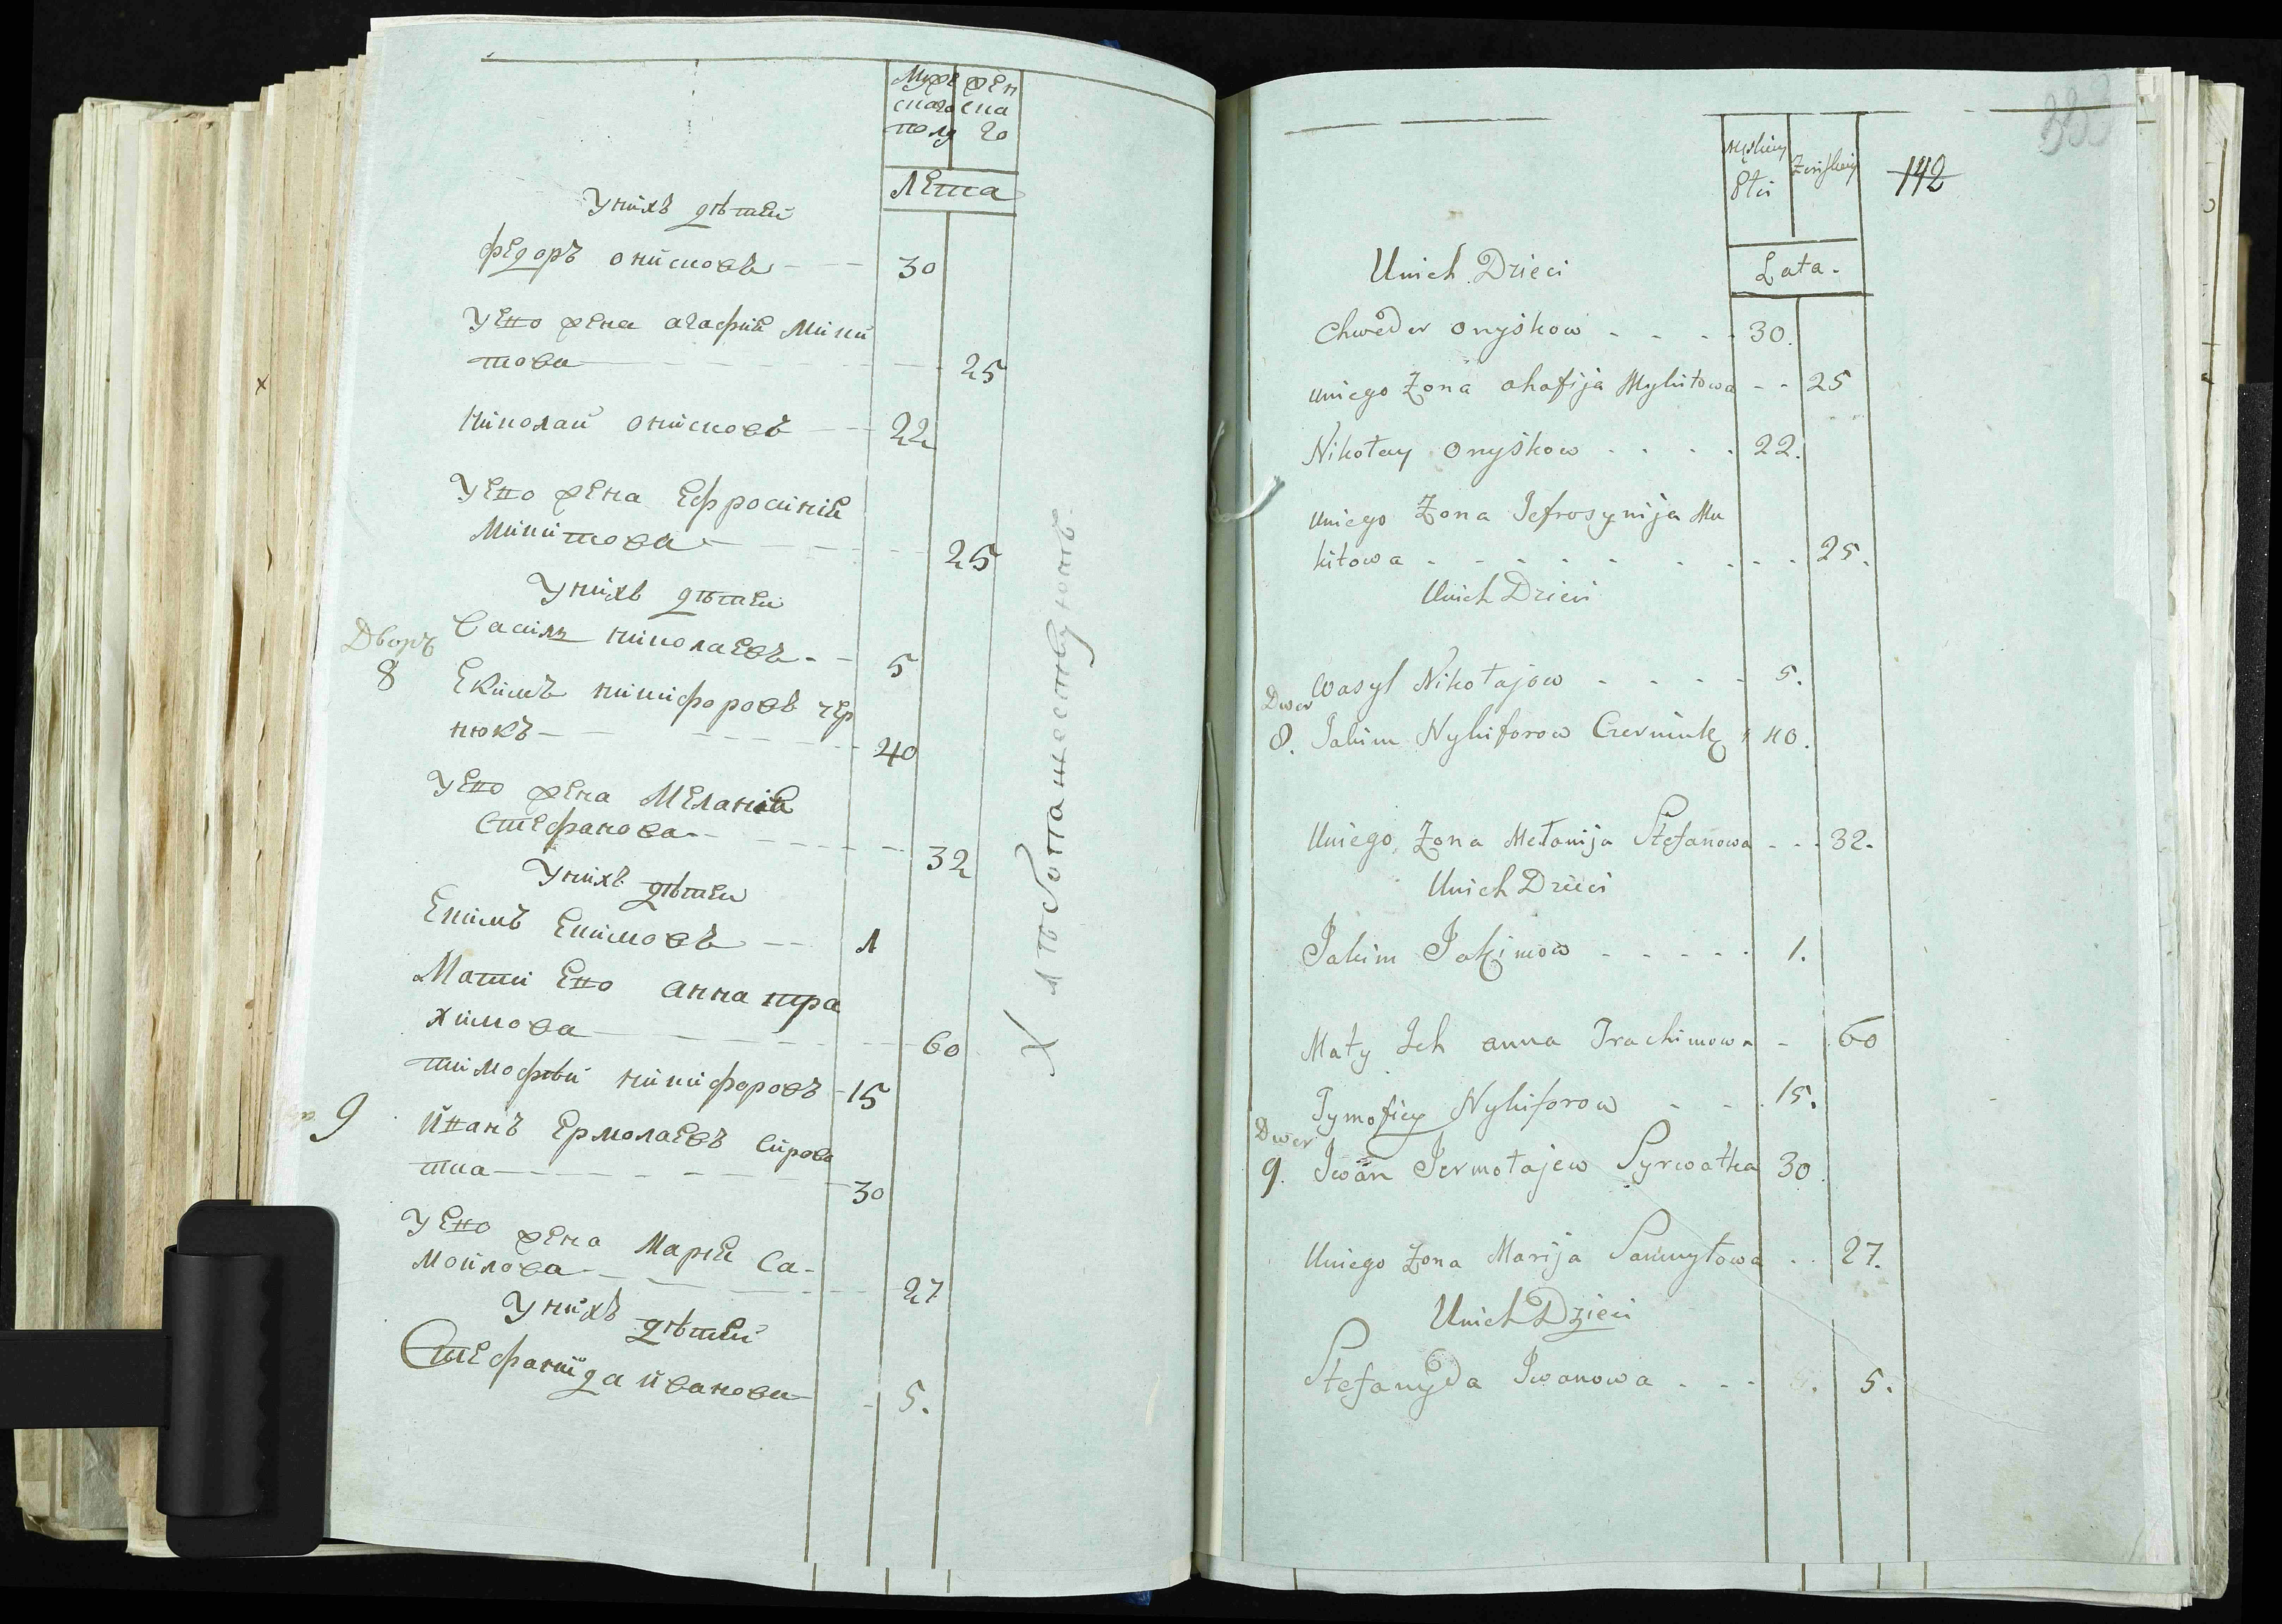 Мужескаго полу
женска го
Лета
У нихъ дѣтей
Федоръ Онисковъ 30
У его жена Агафия Мики
това 25
Николай Онисковъ 22
У его жена Ефросиния
Микитова 25
У нихъ дѣтей
Дворъ
Василь Николаевъ 5
8 Екимъ Никифоровъ Чер
нюкъ 40
У его жена Мелания
Стефанова 32
У нихъ дѣтей
Екимъ Екимовъ 1
Мати Его Анна Тра
химова 60
Тимофѣй Никифоровъ 15
9 Иванъ Ермолаевъ Сирова
тка 30
У его жена Мария Са-
мойлова 27
У нихъ дѣтей
Стефанида Иванова 5.
Хлѣбопашествуютъ
142
Męskiey Płci
Żeńskiey
Lata.
Unich Dzieci
Chweder Onyśkow 30.
Uniego Żona Ahafija Mykitowa 25
Nikołay Onyśkow 22.
Uniego Żona Jefrosynija My
kitowa 25.
Unich Dzieci
Wasyl Nikołajow 5.
Dwor
8. Jakim Nykiforow Czerniuk 40.
Uniego Żona Mełanija Stefanowa 32.
Unich Dzieci
Jakim Jakimow 1.
Maty Ich Anna Trachimowa 60
Tymofiey Nykiforow 15.
Dwor
9. Iwan Jermołajew Syrwatka 30.
Uniego Żona Marija Samuyłowa 27.
Unich Dzieci
Stefanyda Iwanowa 5.